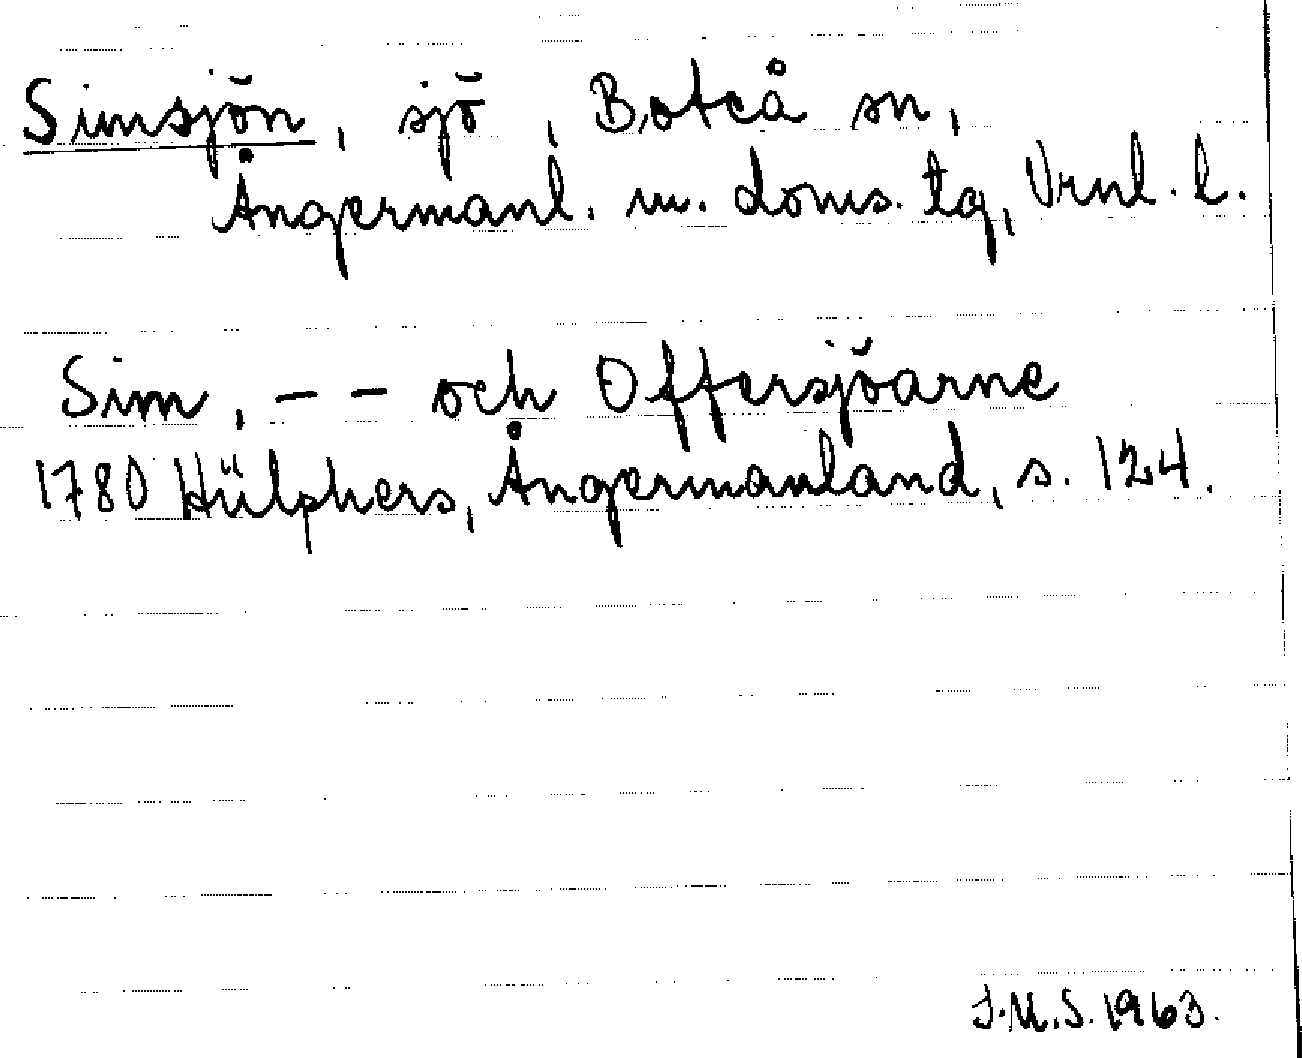 Simsjön, sjö, Boteå sn,
Ångermanl. m. doms. tg, Vrnl. l.
Sim, -- och Offersjöarne
1780 Hülphers, Ångermanland, s. 124.
J.M.S. 1963.